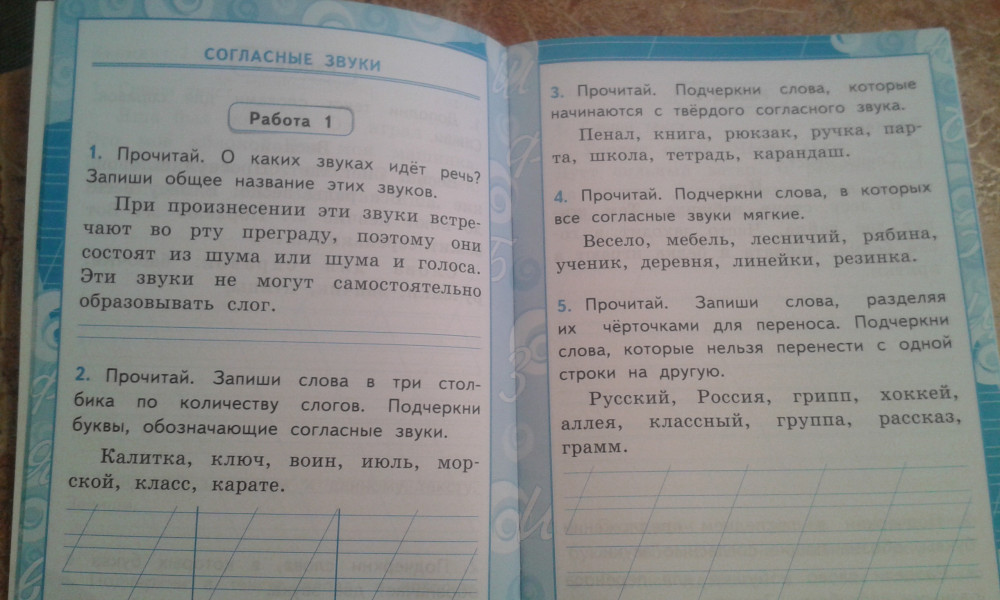 СОГЛАСНЫЕ ЗВУКИ
Работа 1
1. Прочитай. О каких звуках идёт речь?
Запиши общее название этих звуков.
При произнесении эти звуки встре-
чают во рту преграду, поэтому они
состоят из шума или шума и голоса.
Эти звуки не могут самостоятельно
образовывать слог.
2. Прочитай. Запиши слова в три стол-
бика по количеству слогов. Подчеркни
буквы, обозначающие согласные звуки.
Калитка, ключ, воин, июль, мор-
ской, класс, карате.
3. Прочитай. Подчеркни слова, которые
начинаются с твёрдого согласного звука.
Пенал, книга, рюкзак, ручка, пар-
та, школа, тетрадь, карандаш.
4. Прочитай. Подчеркни слова, в которых
все согласные звуки мягкие.
Весело, мебель, лесничий, рябина,
ученик, деревня, линейки, резинка.
5. Прочитай. Запиши слова, разделяя
их чёрточками для переноса. Подчеркни
слова, которые нельзя перенести с одной
строки на другую.
Русский, Россия, грипп, хоккей,
аллея, классный, группа, рассказ,
грамм.